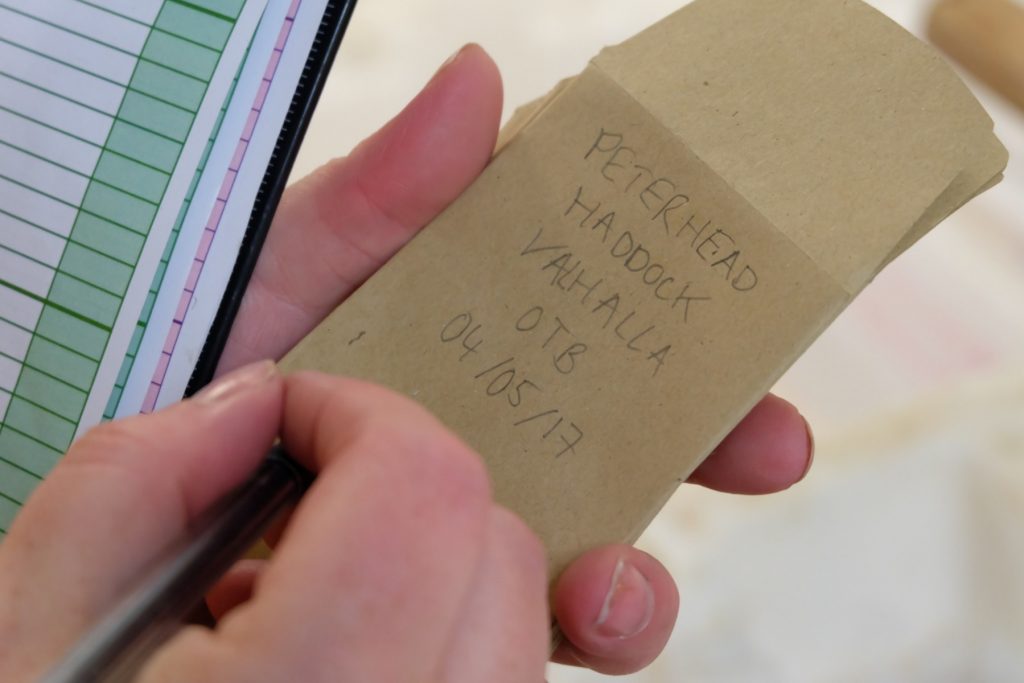 PETERHEAD
HADDOCK
VALHALLA
OTB
04/05/17